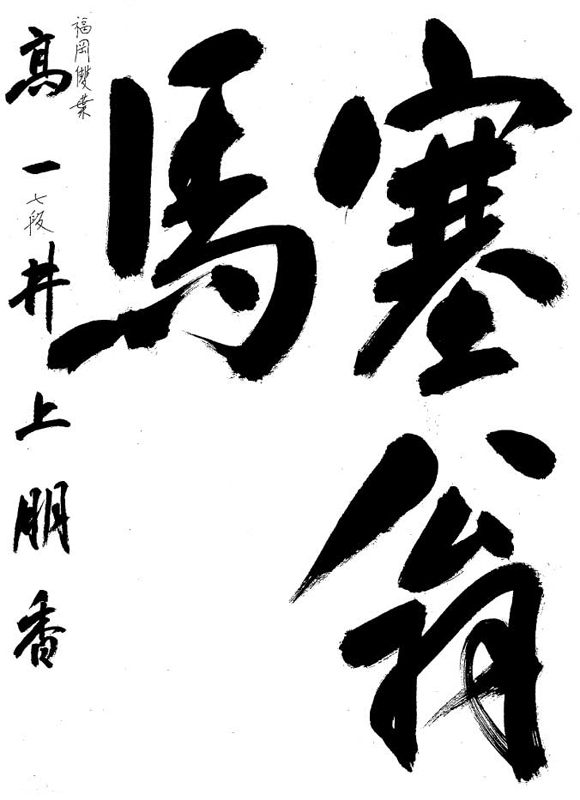 塞翁
馬
福岡雙葉
高一 七段 井上朋香